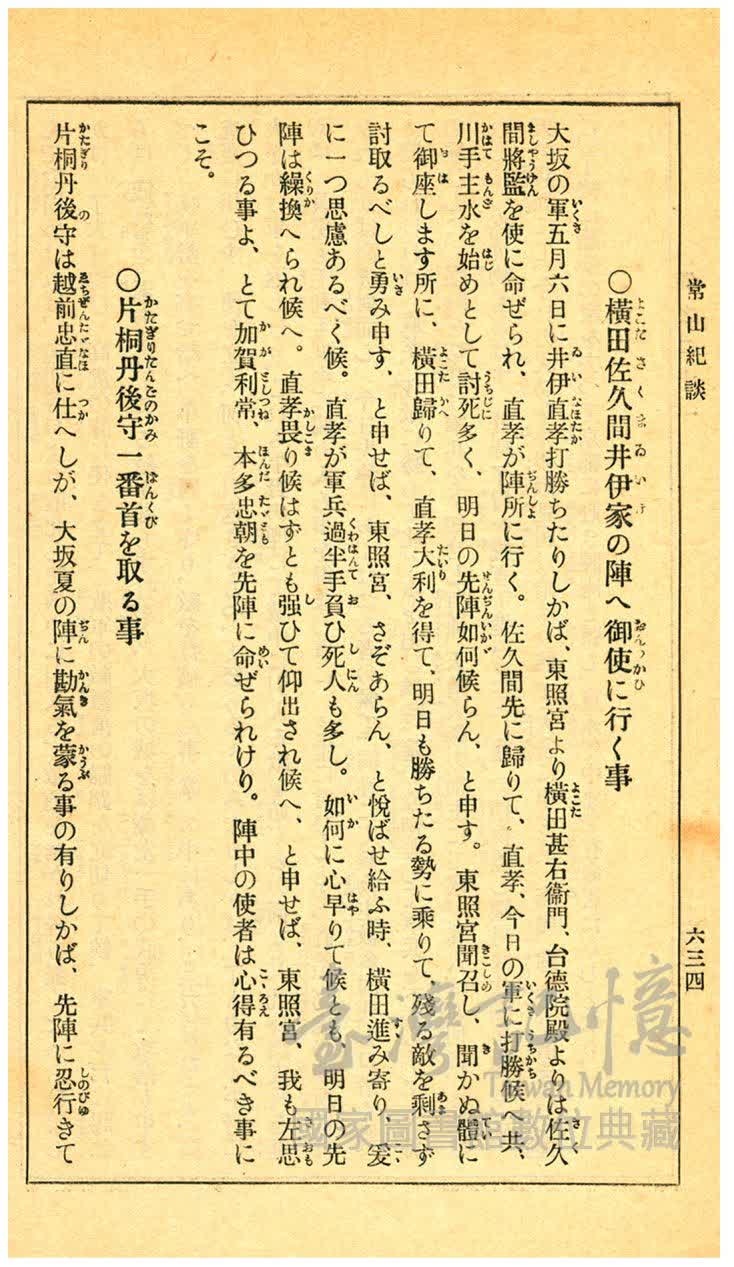 常山紀談
六三四
○橫田佐久間井伊家の陣へ御使に行く事
大坂の軍五月六日に井伊直孝打勝ちたりしかば、東照宮より橫田甚右衞門、台德院殿よりは佐久
間將監を使に命ぜられ、直孝が陣所に行く。佐久間先に歸りて、直孝、今日の軍に打勝候へ共、
川手主水を始めとして討死多く、明日の先陣如何候らん、と申す。東照宮聞召し、聞かぬ體に
て御座します所に、橫田歸りて、直孝大利を得て、明日も勝ちたる勢に乘りて、殘る敵を剩さず
討取るべしと勇み申す、と申せば、東照宮、さぞあらん、と悅ばせ給ふ時、橫田進み寄り、爰
に一つ思慮あるべく候。直孝が軍兵過半手負ひ死人も多し。如何に心早りて候とも、明日の先
陣は繰換へられ候へ。直孝畏り候はずとも强ひて仰出され候へ、と申せば、東照宮、我も左思
ひつる事よ、とて加賀利常、本多忠朝を先陣に命ぜられけり。陣中の使者は心得有るべき事に
こそ。
○片桐丹後守一番首を取る事
片桐丹後守は越前忠直に仕へしが、大坂夏の陣に勘氣を蒙る事の有りしかば、先陣に忍行きて
臺灣記憶
Taiwan Memory
國家圖書館數位典藏